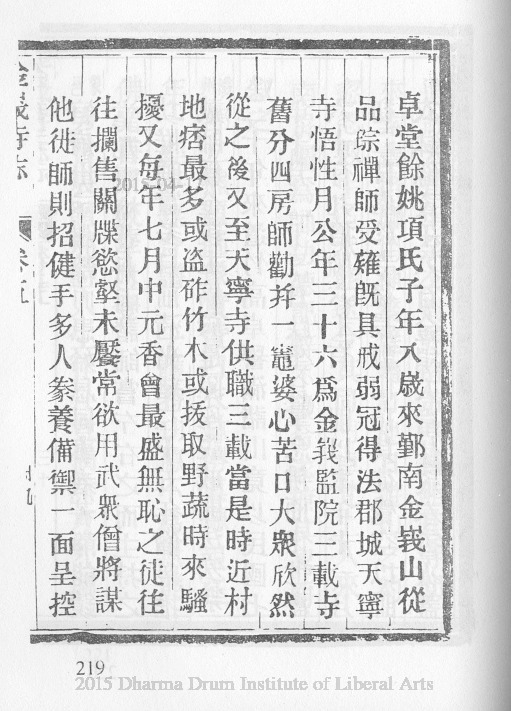 卓堂餘姚項氏子年八歲來鄞南金峩山從
品琮禪師受薙旣具戒弱冠得法郡城天寧
寺悟性月公年三十六爲金峩監院三載寺
舊分四房師勸幷一竈婆心苦口大衆欣然
從之後又至天寧寺供職三載當是時近村
地痞最多或盜砟竹木或拔取野蔬時來騷
擾又每年七月中元香會最盛無恥之徒往
往攔售關牒慾壑未饜常欲用武衆僧將謀
他徙師則招健手多人豢養備禦一面呈控
金峩寺志
卷五
219
2015 Dharma Drum Institute of Liberal Arts